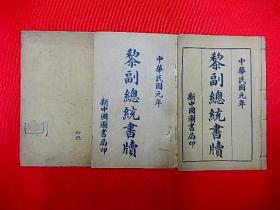 中華民國元年
黎副總統書牘
新中國圖書局印
中華民國元年
黎副總統書牘
新中國圖書局印